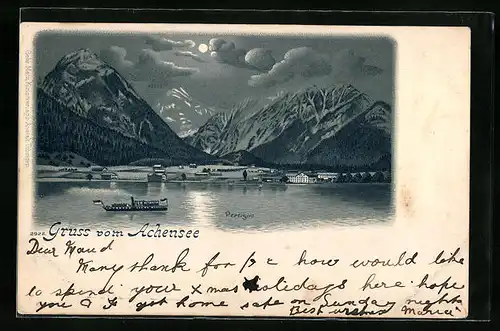 Pertisau
2926 Gruss vom Achensee
Dear Maud
Many thank for p/c how would like
to spend your xmas holidays here. hope
you & F got home safe on Sunday night
Best wishes Maria